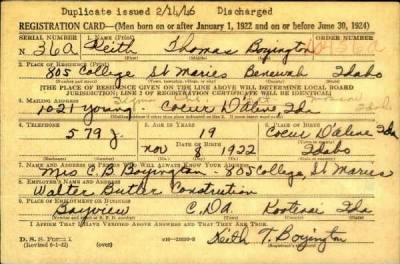 Duplicate issued 2/11/46 Discharged
REGISTRATION CARD—(Men born on or after January 1, 1922 and on or before June 30, 1924)
SERIAL NUMBER 1. NAME (Print) ORDER NUMBER
N 36a Keith Thomas Boyington
(First) (Middle) (Last)
2. PLACE OF RESIDENCE (Print)
805 College St Maries Benewah Idaho
[THE PLACE OF RESIDENCE GIVEN ON THE LINE ABOVE WILL DETERMINE LOCAL BOARD
JURISDICTION; LINE 2 OF REGISTRATION CERTIFICATE WILL BE IDENTICAL]
3. MAILING ADDRESS
1021 Young - Coeur D'Alene Ida
4. TELEPHONE 5. AGE IN YEARS 6. PLACE OF BIRTH
579 J 19 Coeur D'Alene Ida
DATE OF BIRTH
Nov 8 1922 Idaho
7. NAME AND ADDRESS OF PERSON WHO WILL ALWAYS KNOW YOUR ADDRESS
Mrs C. B. Boyington - 805 College, St Maries
8. EMPLOYER'S NAME AND ADDRESS
Walter Butler Constrution
9. PLACE OF EMPLOYMENT OR BUSINESS
Bayview C, DA Kootenai Ida
I AFFIRM THAT I HAVE VERIFIED ABOVE ANSWERS AND THAT THEY ARE TRUE.
D. S. S. Form 1
(Revised 6-1-42) (over)
Keith T. Boyington